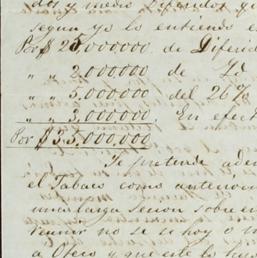 dos, y medio Diferidos y
segun yo lo entiendo e
Por $ 25,000000 de Difend
" " 2,000000 de Id
" " 5,000000 del 26%
" " 3,000000. En efect
Por $ 35.000,000
Se pretende ade
el Tabaco como anterior
una larga sesion sobre e
venir no se si hoy o m
a Otero y que este lo hu